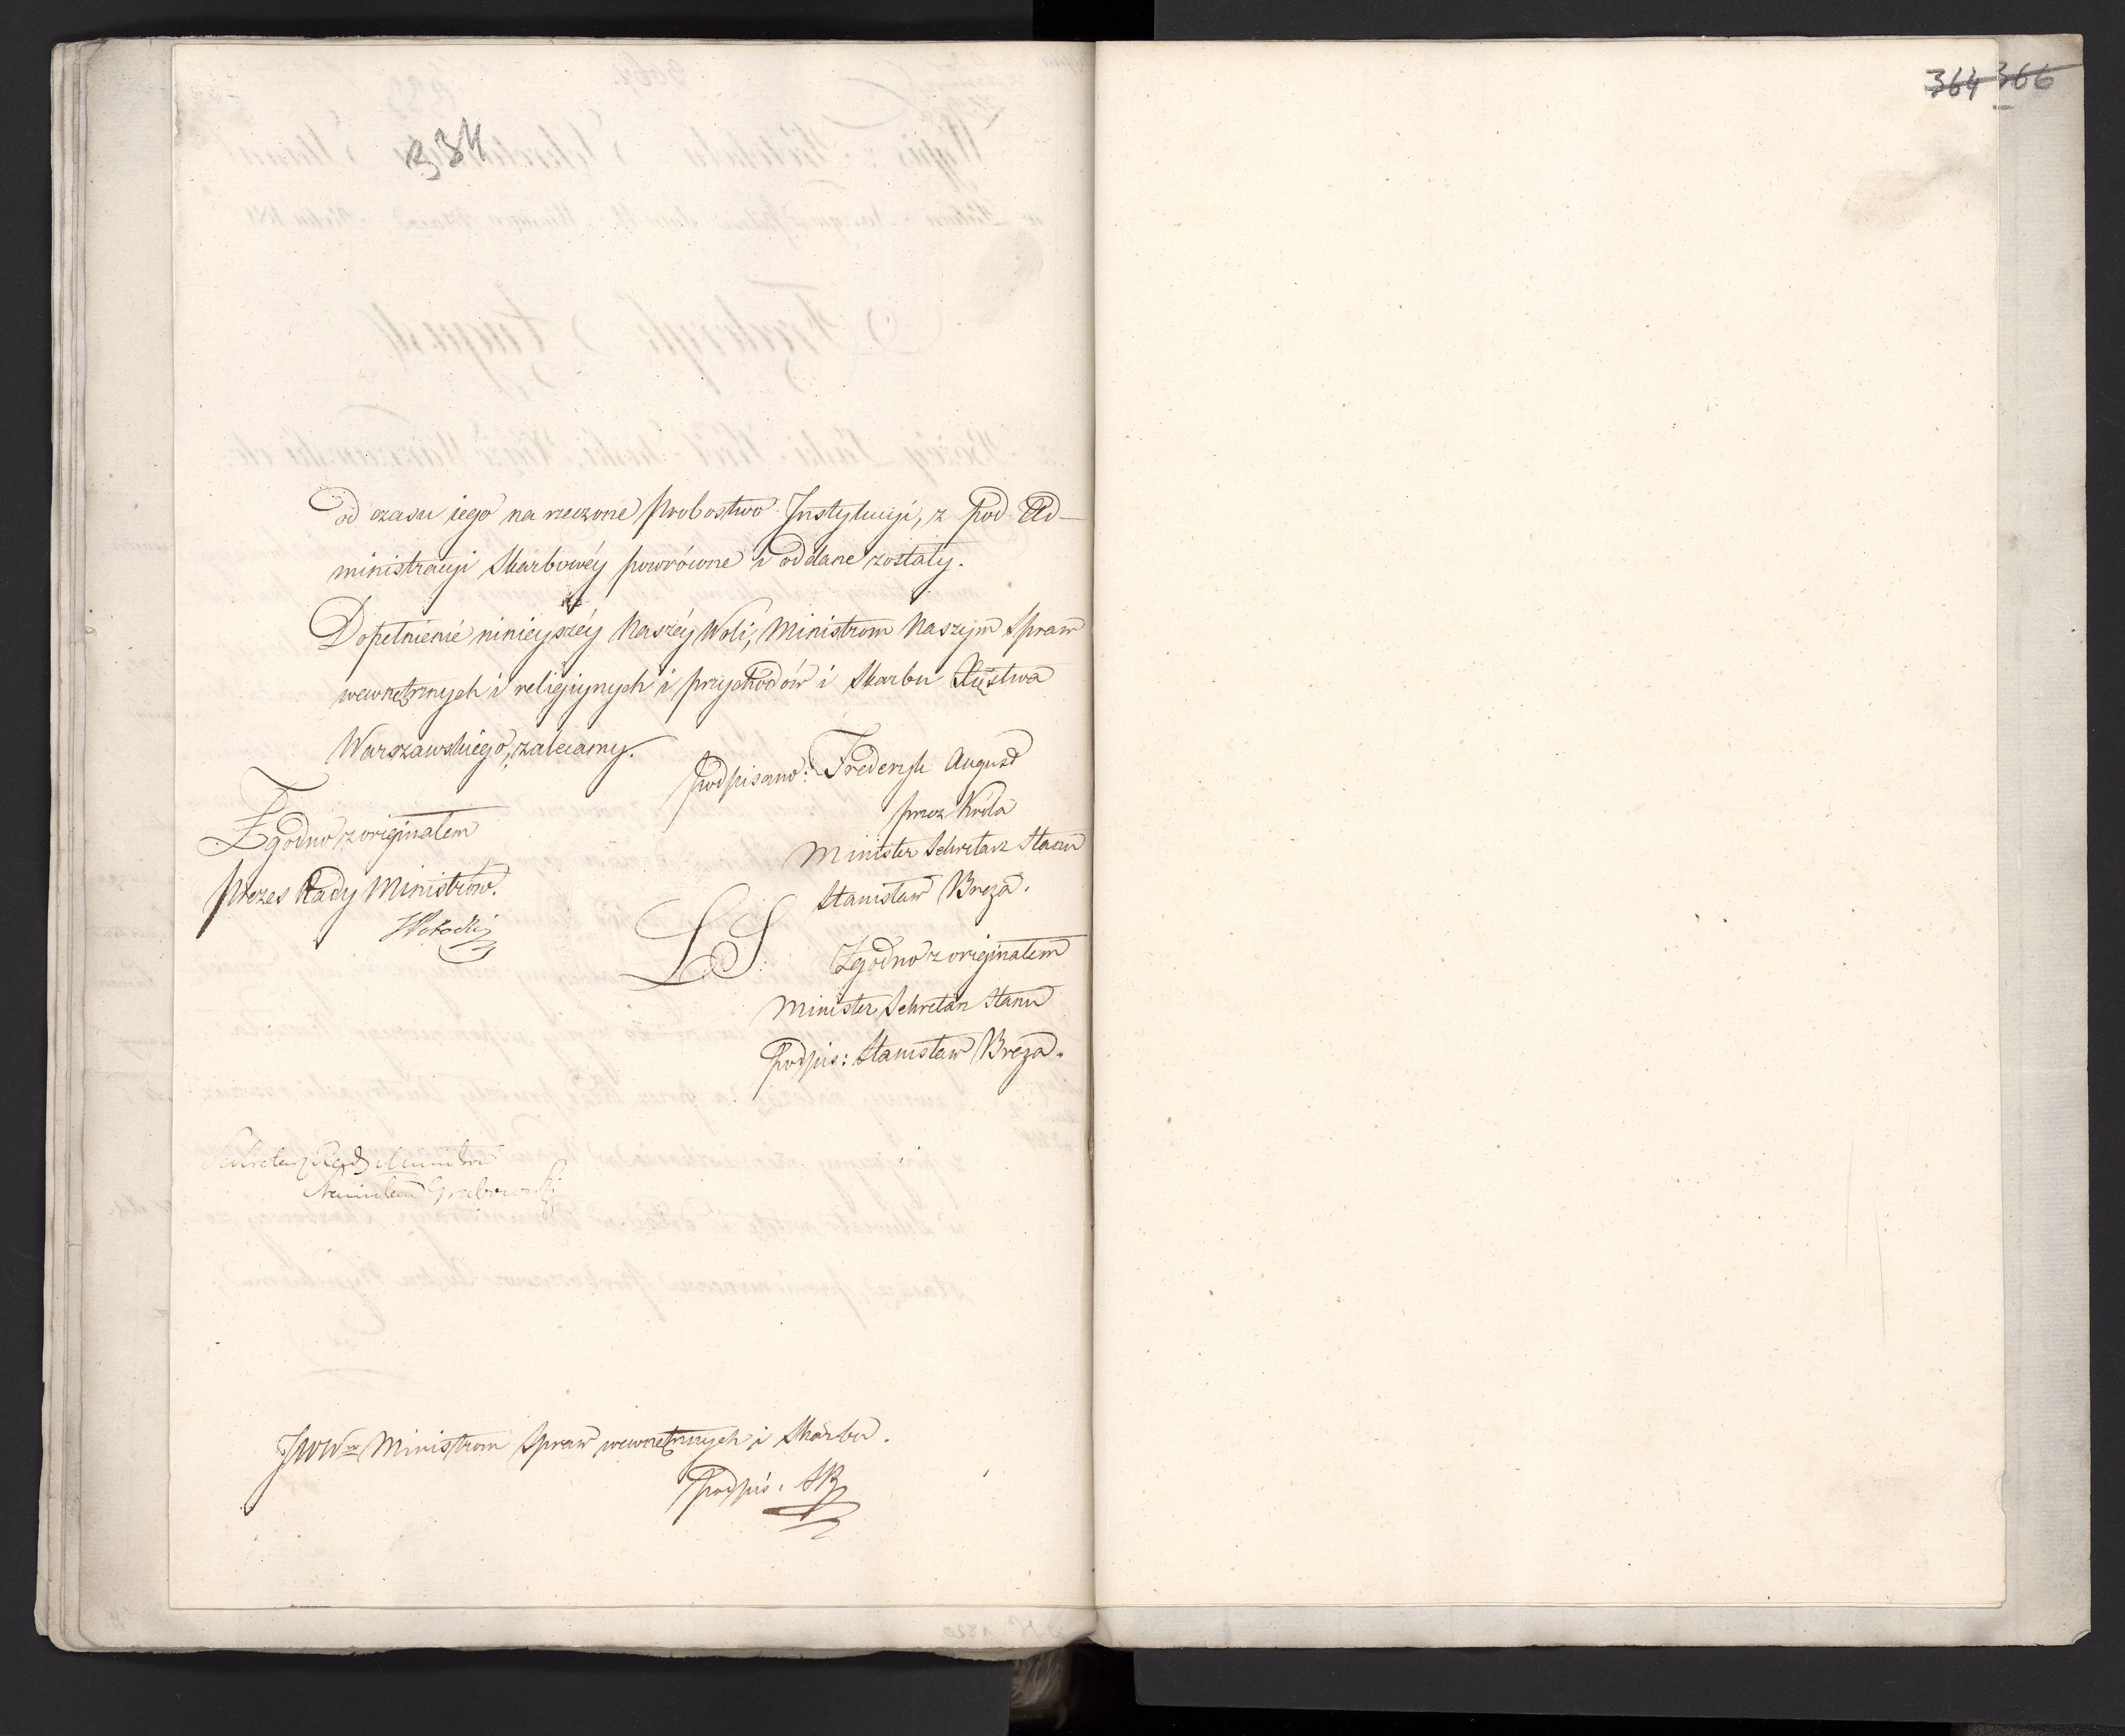 334
364 366
od czasu iego na rzeczone probostwo Instytucyi, z pod Ad-
ministracyi Skarbowéy powrócone i oddane zostały.
Dopełnienié ninieyszéy Naszéy Woli, Ministrom Naszym Spraw
wewnętrznych i religiynych i przychodów i Skarbu Xięstwa
Warszawskiego, zalecamy.
podpisano: Frederyk August
przez Króla
Minister Sekretarz Stanu
Stanisław Breza.
Zgodno z originałem
Prezes Rady Ministrów.
LS
Zgodno z originałem
Minister Sekretarz Stanu
Podpis: Stanisław Breza.
Sekretarz Rady Ministrów
Stanisław Grabowski
JWW Ministrom Spraw wewnętrznych i Skarbu.
Podpis. SB